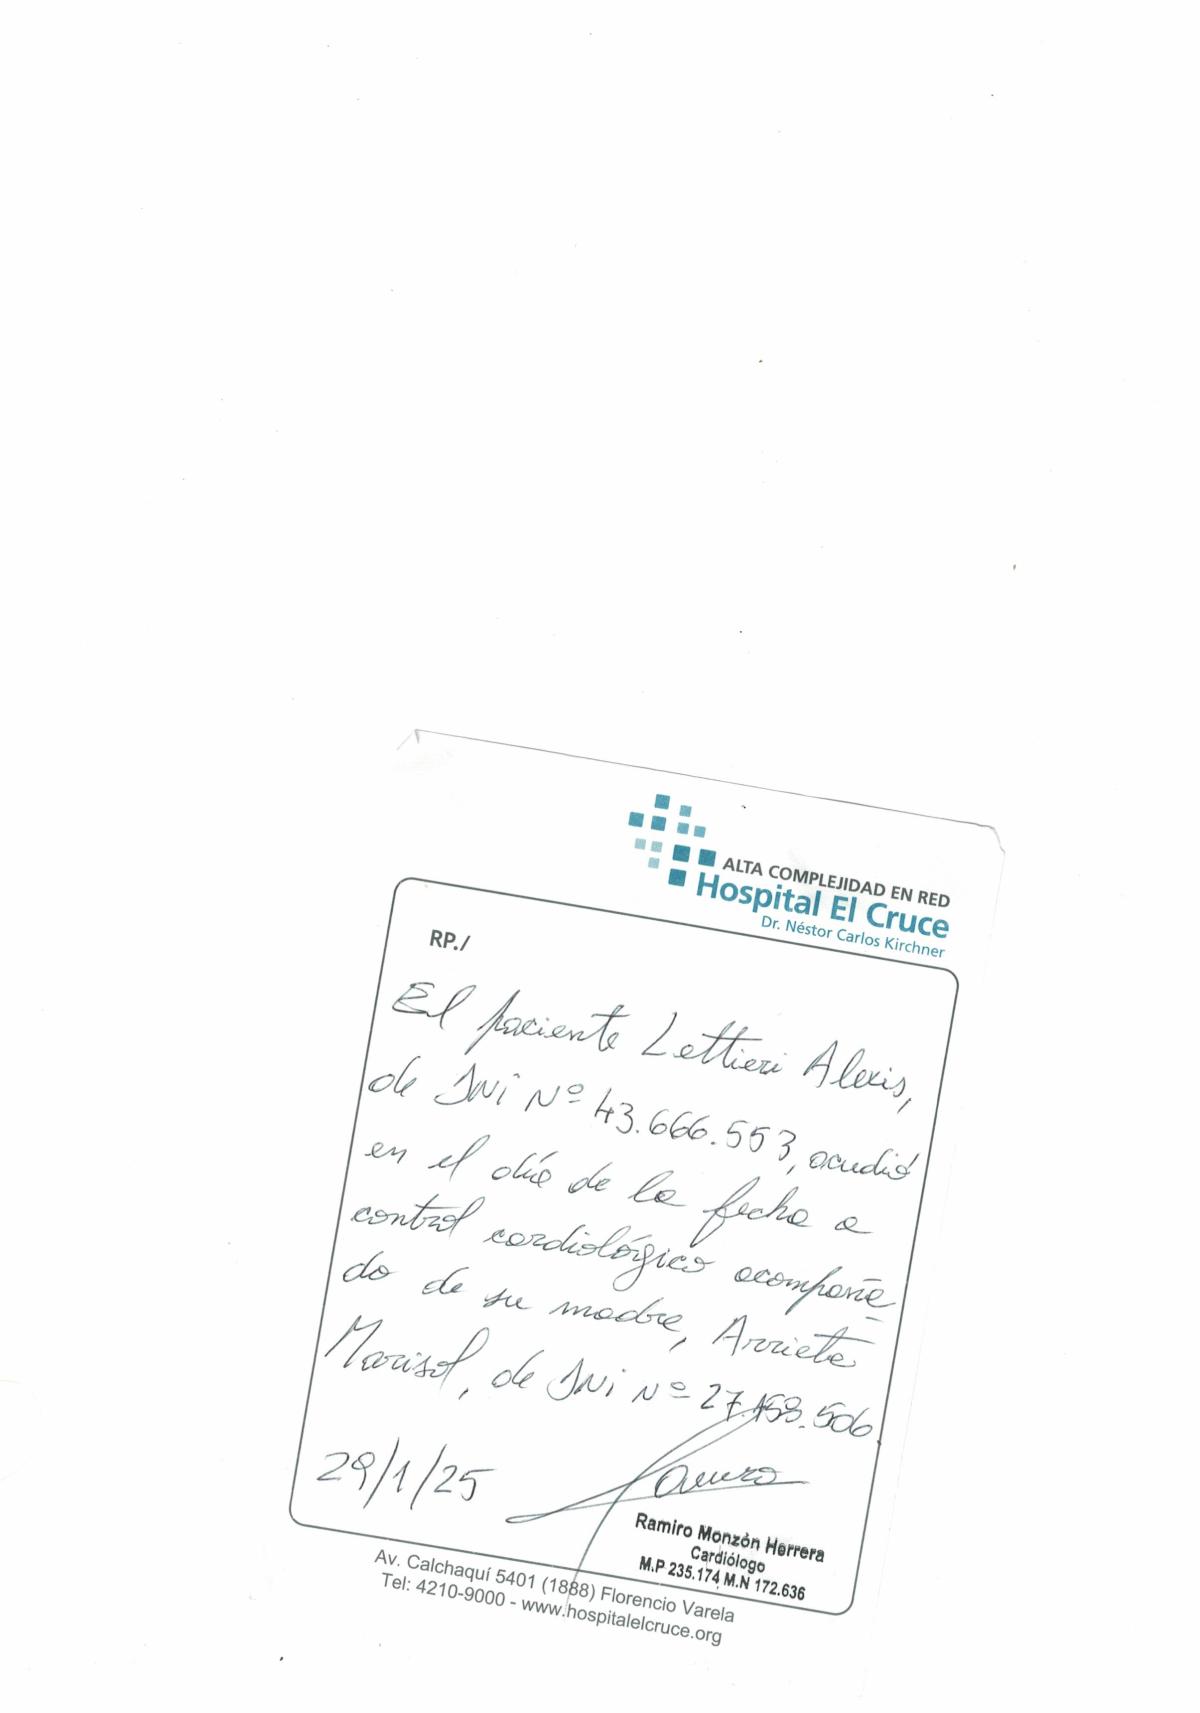 ALTA COMPLEJIDAD EN RED
Hospital El Cruce
Dr. Néstor Carlos Kirchner
RP./
El paciente Lettieri Alexis,
de DNI Nº 43.666.553, acudió
en el día de la fecha a
control cardiológico acompaña
do de su madre, Arrieta
Marisol, de DNI Nº 27.153.506.
29/1/25
Ramiro Monzón Herrera
Cardiólogo
M.P 235.174 M.N 172.636
Av. Calchaquí 5401 (1888) Florencio Varela
Tel: 4210-9000 - www.hospitalelcruce.org